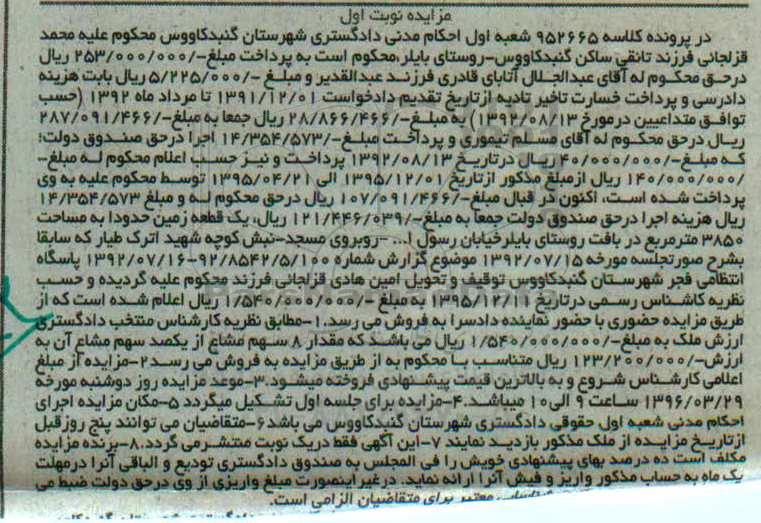 مزایده نوبت اول
در پرونده کلاسه ۹۵۲۶۶۵ شعبه اول احکام مدنی دادگستری شهرستان گنبدکاووس محکوم علیه محمد
قزلجائی فرزند تانقی ساکن گنبدکاووس-روستای بایلر،محکوم است به پرداخت مبلغ-/۲۵۳/۰۰۰/۰۰۰ ریال
درحق محکوم له آقای عبدالجلال آتابای قادری فرزند عبدالقدیر و مبلغ -/۵/۲۲۵/۰۰۰ ریال بابت هزینه
دادرسی و پرداخت خسارت تاخیر تادیه ازتاریخ تقدیم دادخواست ۱۳۹۱/۱۲/۰۱ تا مرداد ماه ۱۳۹۲ (حسب
توافق متداعیین درمورخ ۱۳۹۲/۰۸/۱۳) به مبلغ-/۲۸/۸۶۶/۴۶۶ ریال جمعا به مبلغ-/۲۸۷/۰۹۱/۴۶۶
ریال درحق محکوم له آقای مسلم تیموری و پرداخت مبلغ-/۱۴/۳۵۴/۵۷۳ اجرا درحق صندوق دولت؛
که مبلغ-/۴۰/۰۰۰/۰۰۰ ریال درتاریخ ۱۳۹۲/۰۸/۱۳ پرداخت و نیز حسب اعلام محکوم له مبلغ-
/۱۴۰/۰۰۰/۰۰۰ ریال ازمبلغ مذکور ازتاریخ ۱۳۹۵/۱۲/۰۱ الی ۱۳۹۵/۰۴/۲۱ توسط محکوم علیه به وی
پرداخت شده است، اکنون در قبال مبلغ-/۱۰۷/۰۹۱/۴۶۶ ریال درحق محکوم له و مبلغ ۱۴/۳۵۴/۵۷۳
ریال هزینه اجرا درحق صندوق دولت جمعاً به مبلغ-/۱۲۱/۴۴۶/۰۳۹ ریال، یک قطعه زمین حدودا به مساحت
۳۸۵۰ مترمربع در بافت روستای بایلرخیابان رسول ا... -روبروی مسجد-نبش کوچه شهید اترک طیار که سابقا
بشرح صورتجلسه مورخه ۱۳۹۲/۰۷/۱۵ موضوع گزارش شماره ۹۲/۸۵۴۲/۵/۱۰۰-۱۳۹۲/۰۷/۱۶ پاسگاه
انتظامی فجر شهرستان گنبدکاووس توقیف و تحویل امین هادی قزلجائی فرزند محکوم علیه گردیده و حسب
نظریه کاشناس رسمی درتاریخ ۱۳۹۵/۱۲/۱۱ به مبلغ -/۱/۵۴۰/۰۰۰/۰۰۰ ریال اعلام شده است که از
طریق مزایده حضوری با حضور نماینده دادسرا به فروش می رسد.۱-مطابق نظریه کارشناس منتخب دادگستری
ارزش ملک به مبلغ-/۱/۵۴۰/۰۰۰/۰۰۰ ریال می باشد که مقدار ۸ سهم مشاع از یکصد سهم مشاع آن به
ارزش-/۱۲۳/۲۰۰/۰۰۰ ریال متناسب با محکوم به از طریق مزایده به فروش می رسد ۲-مزایده از مبلغ
اعلامی کارشناس شروع و به بالاترین قیمت پیشنهادی فروخته میشود.۳-موعد مزایده روز دوشنبه مورخه
۱۳۹۶/۰۳/۲۹ ساعت ۹ الی۱۰ میباشد.۴-مزایده برای جلسه اول تشکیل میگردد ۵-مکان مزایده اجرای
احکام مدنی شعبه اول حقوقی دادگستری شهرستان گنبدکاووس می باشد۶-متقاضیان می توانند پنج روزقبل
ازتاریخ مزایده از ملک مذکور بازدید نمایند ۷-این آگهی فقط دریک نوبت منتشرمی گردد.۸-برنده مزایده
مکلف است ده درصد بهای پیشنهادی خویش را فی المجلس به صندوق دادگستری تودیع و الباقی آنرا درمهلت
یک ماه به حساب مذکور واریز و فیش آنرا ارائه نماید. درغیر اینصورت مبلغ واریزی از وی درحق دولت ضبط می
معتبر برای متقاضیان الزامی است.